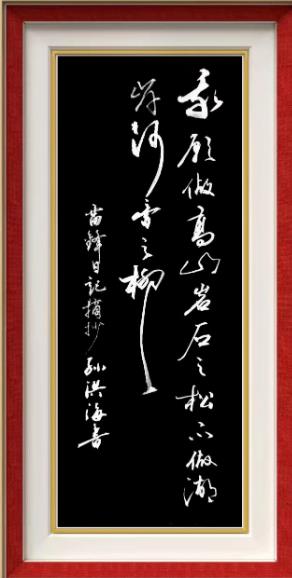 我願做高山岩石之松不做湖
岸河旁之柳
雷鋒日記摘抄 孙洪海書